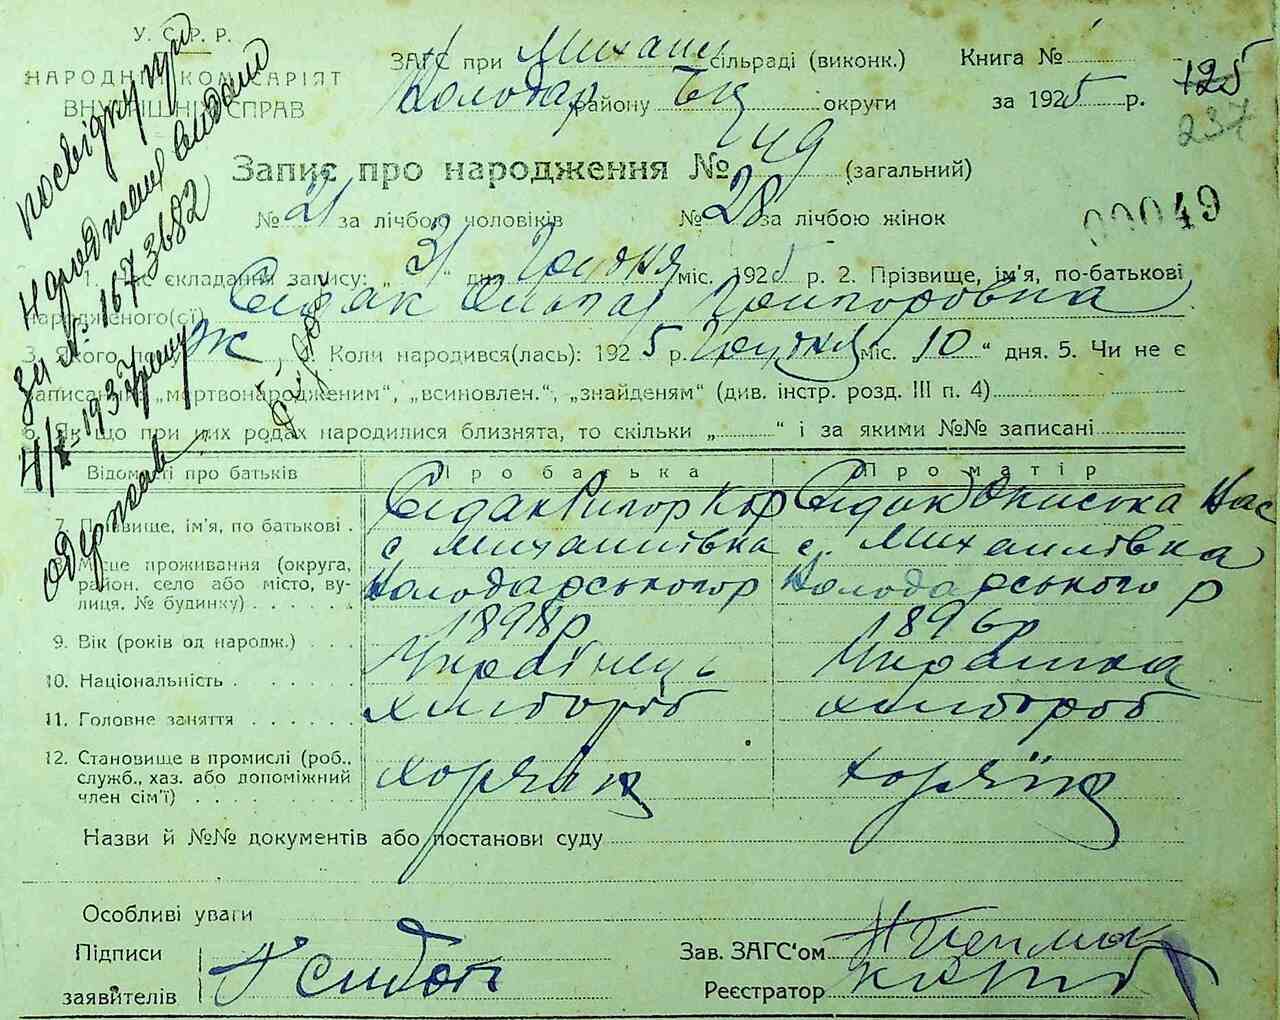 У. С. Р. Р.
НАРОДНІЙ КОМІСАРІЯТ
ВНУТРІШНІХ СПРАВ
ЗАГС при Михайл сільраді (виконк.) Книга №
Володар району БЦ округи за 1925 р.
125
237
Запис про народження № 49 (загальний)
№ 21 за лічбою чоловіків № 28 за лічбою жінок
00049
1. Час складання запису: „31“ дня Грудня міс. 1925 р. 2. Прізвище, ім'я, по-батькові
народженого(сї) Сидак Григоровна
3. Якого полу ж Коли народився(лась): 1925 р. Грудня міс. 10 “ дня. 5. Чи не є
записаний „мертвонародженим“, „всиновлен.“, „знайденям“ (див. інстр. розд. III п. 4)
6. Якщо при цих родах народилися близнята, то скільки „ “ і за якими №№ записані
Відомості про батьків Про батька Про матір
7. Прізвище, ім'я, по батькові Сидак Григор Кор Сидак Ониська
8. Місце проживання (округа, район, село або місто, вулиця, № будинку)
с Михайлівка с. Михайлівка
Володарського р Володарського р
9. Вік (років од народж.) 1898р 1896р
10. Національність Українець Українка
11. Головне заняття хлібороб хлібороб
12. Становище в промислі (роб., служб., хаз. або допоміжний член сім'ї)
Назви й №№ документів або постанови суду
Особливі уваги
Підписи Зав. ЗАГС'ом
заявителів Реєстратор
посвідку про
народження видано
за № 1673682
одержав